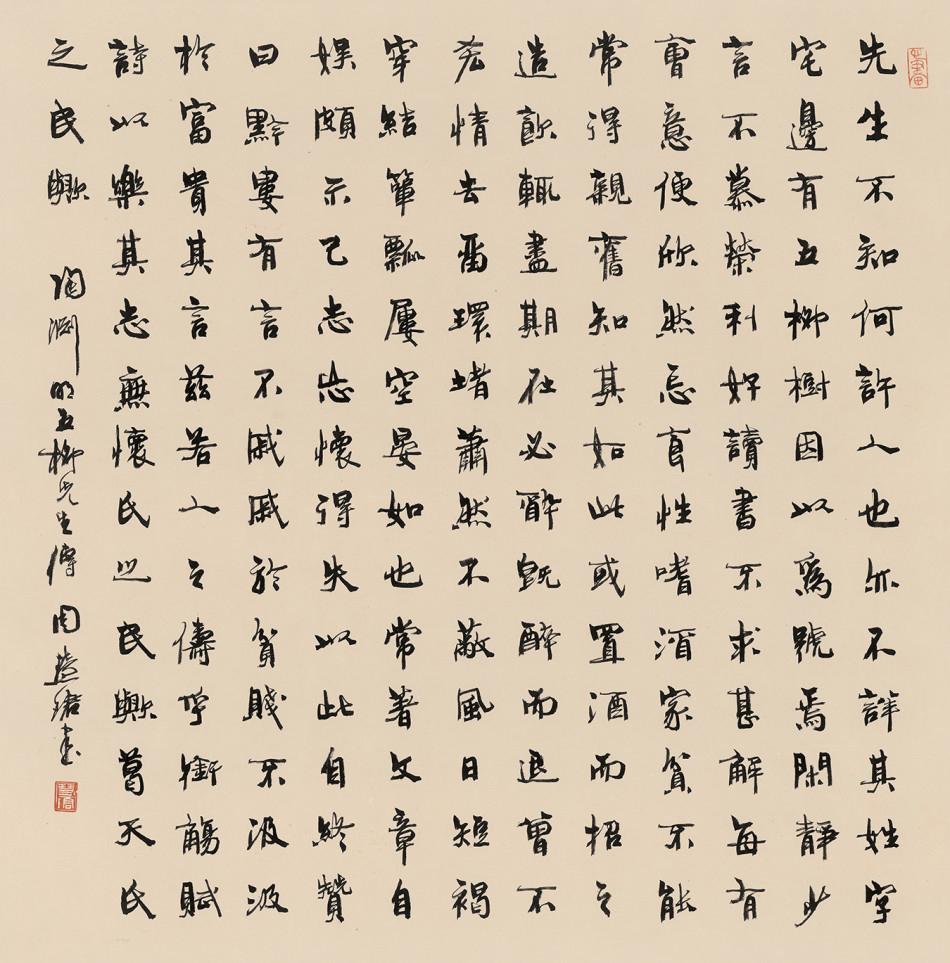 先生不知何許人也亦不詳其姓字
宅邊有五柳樹因以爲號焉閑靜少
言不慕榮利好讀書不求甚解每有
會意便欣然忘食性嗜酒家貧不能
常得親舊知其如此或置酒而招之
造飲輒盡期在必醉既醉而退曾不
吝情去留環堵蕭然不蔽風日短褐
穿結簞瓢屢空晏如也常著文章自
娛頗示己志忘懷得失以此自終贊
曰黔婁有言不戚戚於貧賤不汲汲
於富貴其言茲若人之儔乎銜觴賦
詩以樂其志無懷氏之民歟葛天氏
之民歟 陶淵明五柳先生傳 周慧珺書